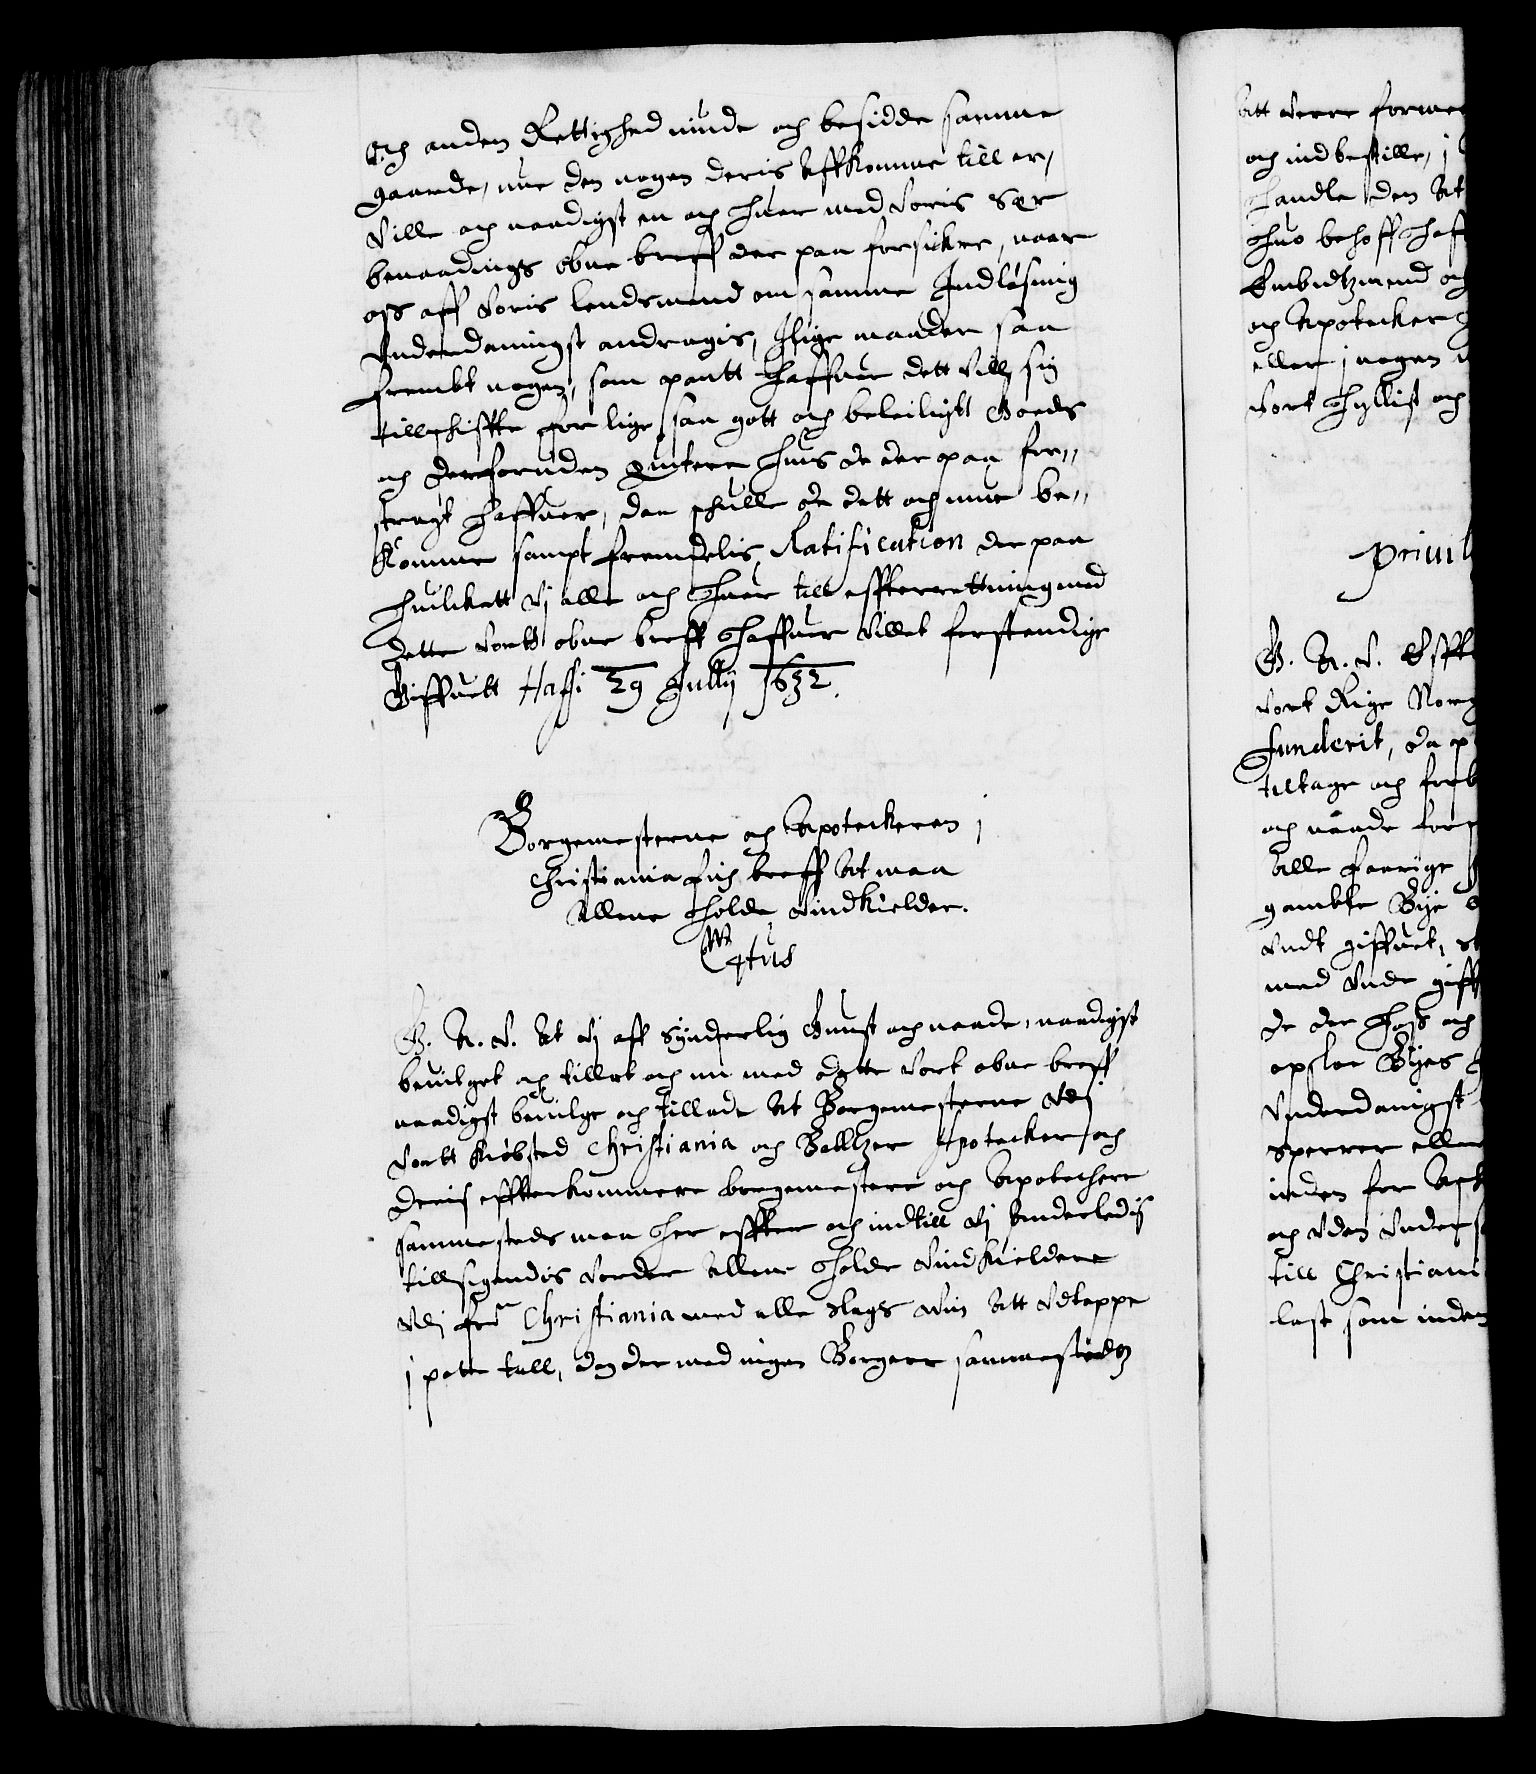 och anden Rettighed niude och besidde samme
gaarde, nu den nogen deris Affkomme till er,
Ville och naadigst en och huer med Voris Sær
benaadings obne breff der paa forsickre, naar
oss aff Voris lendsmend om samme Indløsning
Underdanigst andragis, Ilige maader saa
frembt nogen, som pantt haffuer dett Vill sig
tillschiffte for lige saa gott och beleiligt Goeds
och derforuden quitere huis de der paa for„
stragt haffuer, da schulle de dett och nue be„
komme sampt fremdelis Ratification der paa
huilckett Vj alle och huer till effterrettning med
dette Vortt obne breff haffuer Villet forstendige
Giffuett Haffi 29 Julij 1632.
Borgemesterne och Apoteckeren j
Christiania fich breff At maa
Allene holde Vindkielder.
C4tus
G. A. V. At Vj aff Synderlig Gunst och naade, naadigst
beuilget och tillat och nu med dette Vort obne breff
naadigst beuilge och tillade At Borgemesterne Vdj
Vortt Kiøbsted Christiania och Balltzer Apotecker och
deris effterkommere borgemestere och Apotechere
sammesteds maa her effter och indtill Vj Anderledis
tillsigendis Vorder Allene holde Vindkieldere
Vdj for: Christiania med alle slags Vin Att Vdtappe
j potte tall, dog der med ingen Borgere sammestedtz
Att Verre formee
och indbestille, j
handle den At
huo behoff haf
Embidtzmend og
och Apotecker
eller j nogen
Vort hyllist och
Priuil
G. A. V. Effte
Vort Rige Norg
funderit, da p
tiltage och forb
och naade for
Alle forige
gamble Bye
Vndt giffuet,
med Vnde giff
de der hoss och
opsloe Byes
Vnderdanigst
sperrer eller
inden for Ack
och Vden Vnder
till Christiani
last som inden